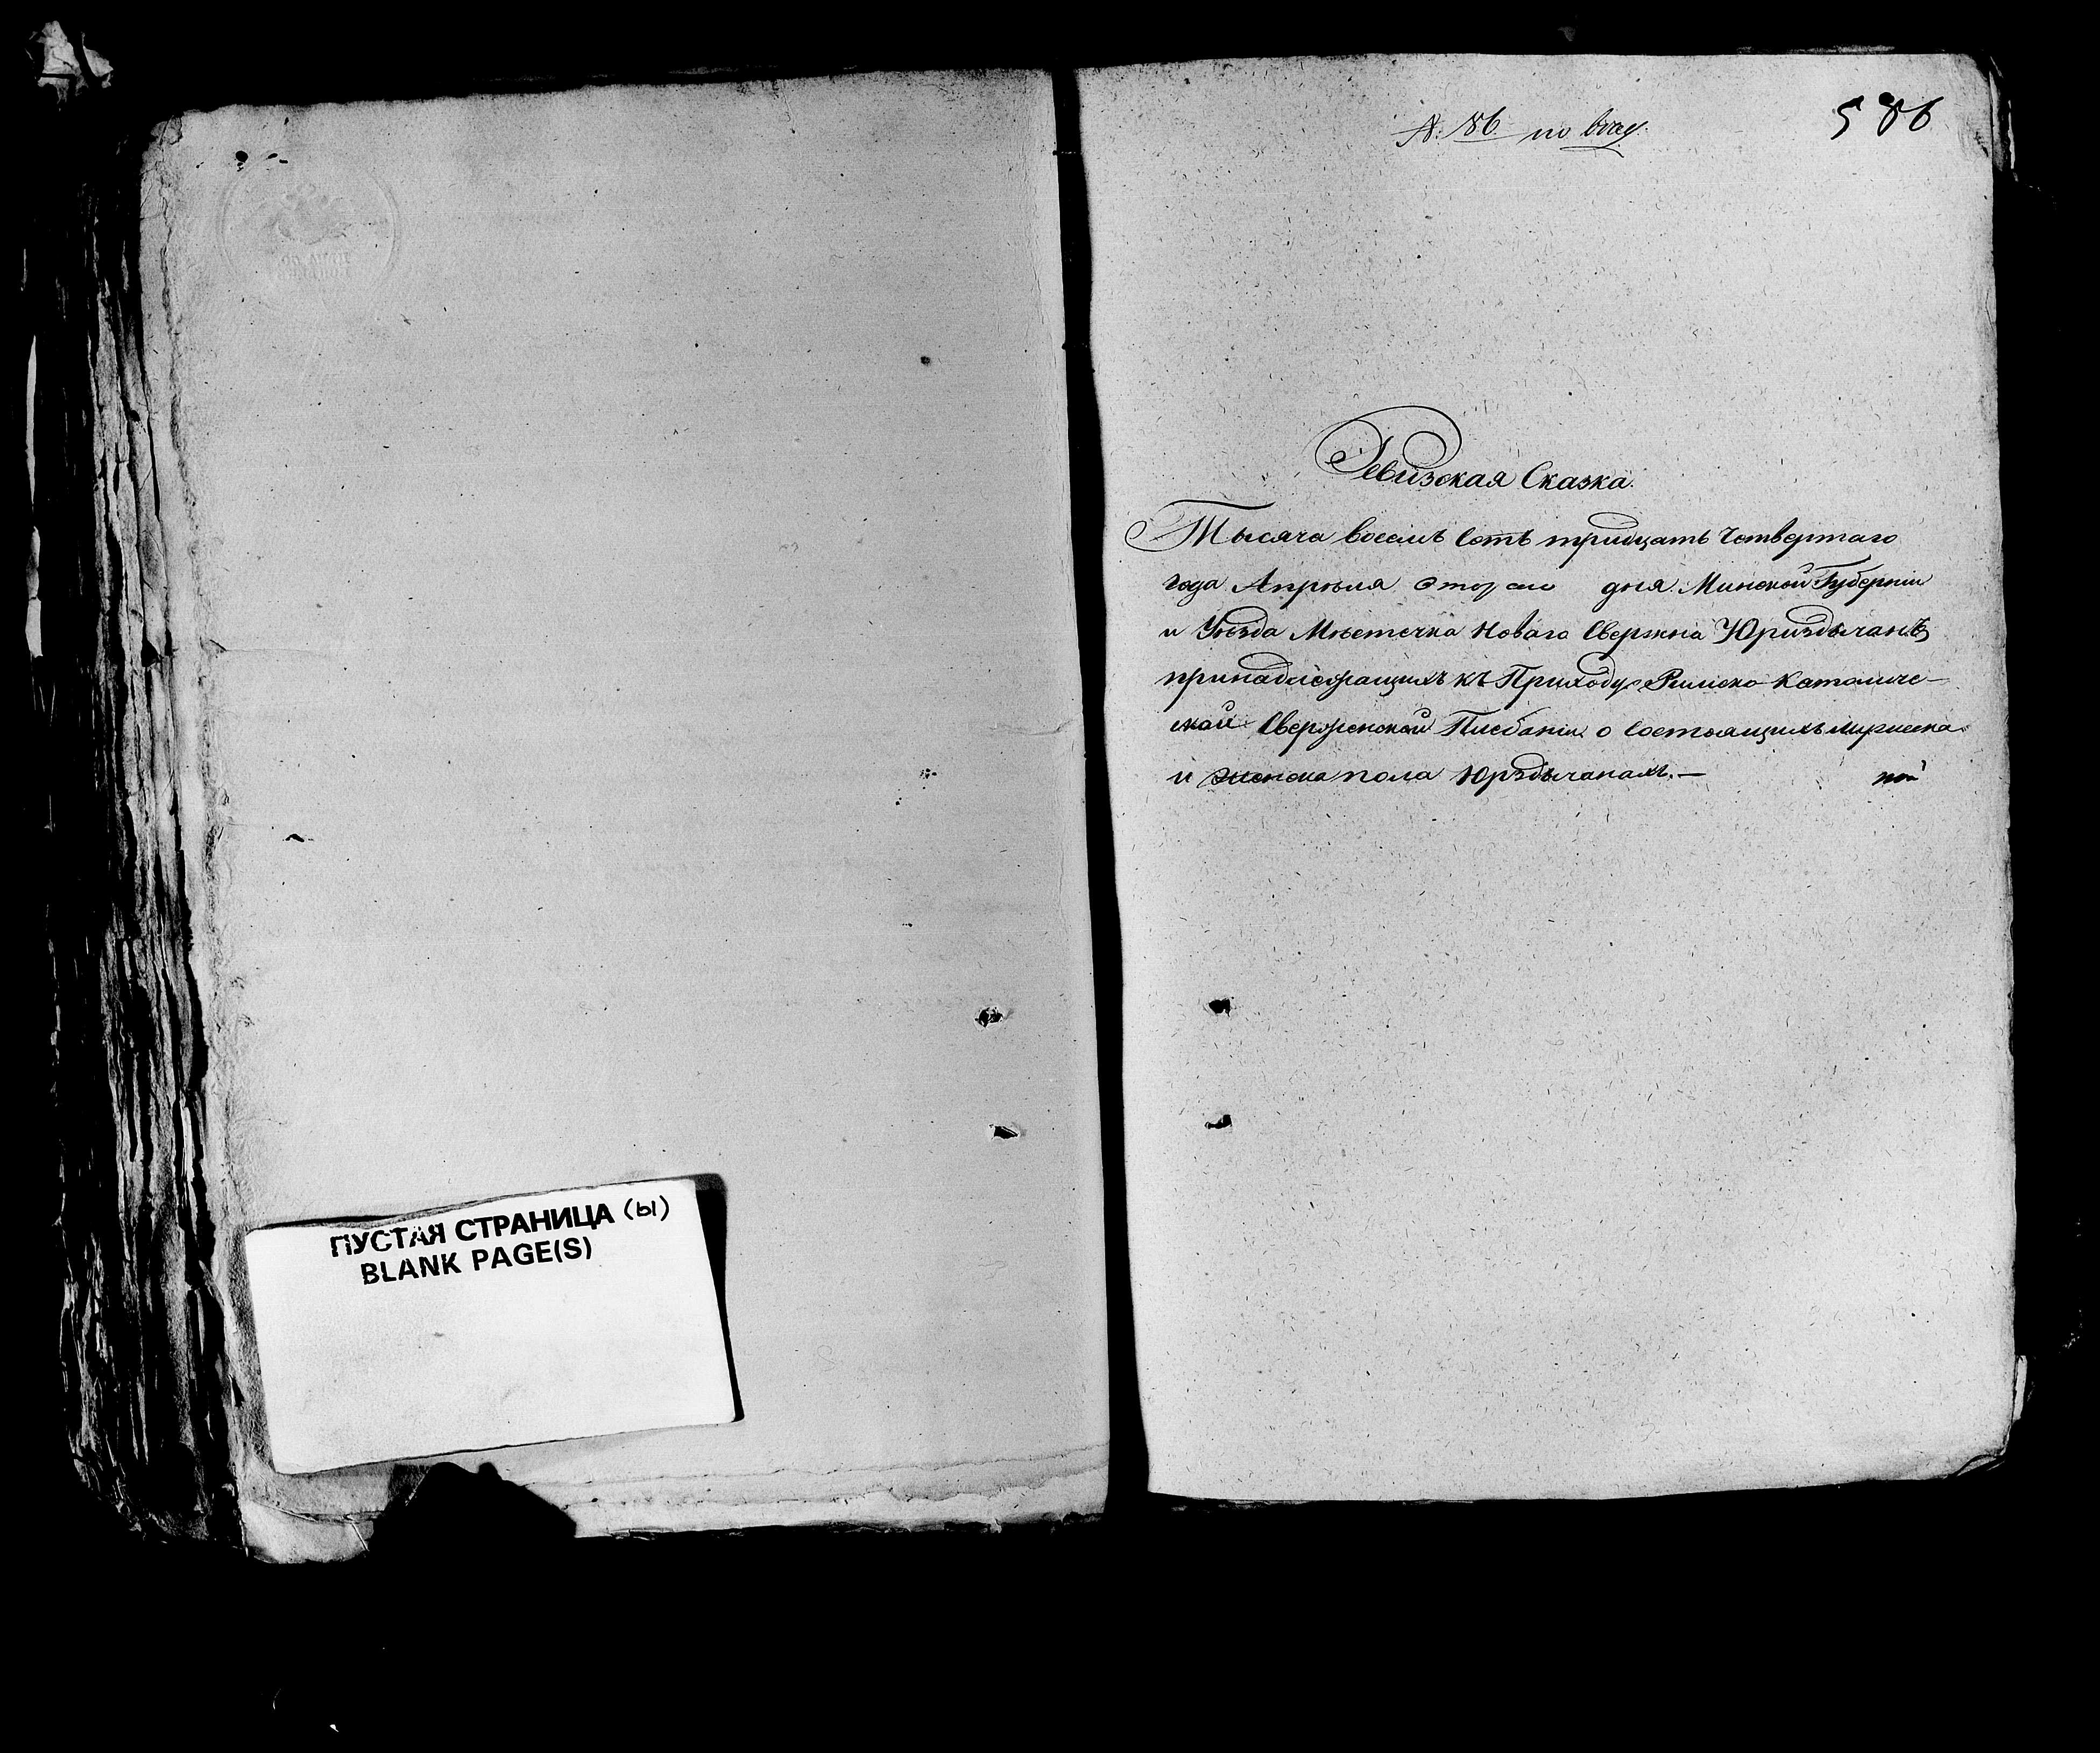 ПУСТАЯ СТРАНИЦА (ы)
BLANK PAGE(S)
№ 86 по
586
Ревизская Сказка.
Тысяча восемь сотъ тридцать четвертаго
года Апрѣля дня Минской Губерніи
и Уѣзда Мѣстечка Новаго Свержня Юриздычанъ
принадлежащихъ къ Приходу Римско Католиче-
ской Сверженской Плебаніи о состоящихъ мужеска
и женска пола Юрздычанахъ.—